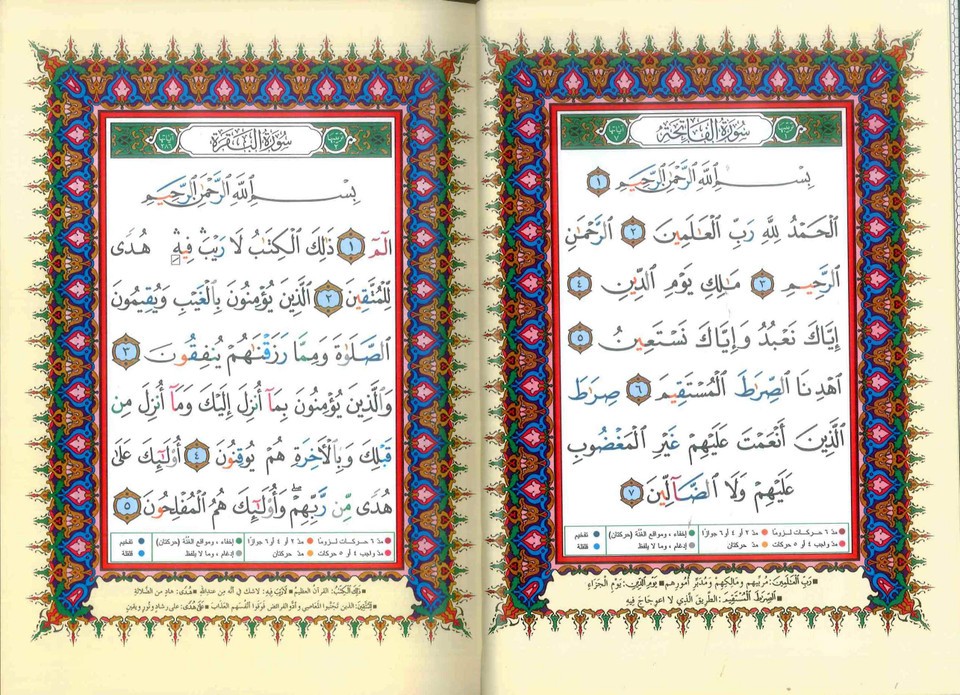 سُورَةُ الْفَاتِحَةِ
بِسْمِ ٱللَّهِ ٱلرَّحْمَٰنِ ٱلرَّحِيمِ ١
ٱلْحَمْدُ لِلَّهِ رَبِّ ٱلْعَٰلَمِينَ ٢ ٱلرَّحْمَٰنِ
ٱلرَّحِيمِ ٣ مَٰلِكِ يَوْمِ ٱلدِّينِ ٤
إِيَّاكَ نَعْبُدُ وَإِيَّاكَ نَسْتَعِينُ ٥
ٱهْدِنَا ٱلصِّرَٰطَ ٱلْمُسْتَقِيمَ ٦ صِرَٰطَ
ٱلَّذِينَ أَنْعَمْتَ عَلَيْهِمْ غَيْرِ ٱلْمَغْضُوبِ
عَلَيْهِمْ وَلَا ٱلضَّآلِّينَ ٧
● مدّ ٦ حركات لزومًا ● مدّ ٢ أو ٤ أو ٦ جوازًا ● إخفاء، ومواقع الغُنَّة (حركتان) ● تفخيم
● مدّ واجب ٤ أو ٥ حركات ● مدّ حركتان ● إدغام، وما لا يُلفظ ● قلقلة
■ رَبِّ ٱلْعَٰلَمِينَ: مُرَبِّيهم ومَالِكِهم ومُدَبِّر أمُورِهم ■ يَوْمِ ٱلدِّينِ: يَوْمِ الْجَزَاءِ
■ ٱلصِّرَٰطَ ٱلْمُسْتَقِيمَ: الطَّرِيقَ الَّذِي لَا اعوِجَاجَ فِيهِ
سُورَةُ الْبَقَرَةِ
بِسْمِ ٱللَّهِ ٱلرَّحْمَٰنِ ٱلرَّحِيمِ
الٓمٓ ١ ذَٰلِكَ ٱلْكِتَٰبُ لَا رَيْبَ ۛ فِيهِ ۛ هُدًى
لِّلْمُتَّقِينَ ٢ ٱلَّذِينَ يُؤْمِنُونَ بِٱلْغَيْبِ وَيُقِيمُونَ
ٱلصَّلَوٰةَ وَمِمَّا رَزَقْنَٰهُمْ يُنفِقُونَ ٣
وَٱلَّذِينَ يُؤْمِنُونَ بِمَآ أُنزِلَ إِلَيْكَ وَمَآ أُنزِلَ مِن
قَبْلِكَ وَبِٱلْءَاخِرَةِ هُمْ يُوقِنُونَ ٤ أُو۟لَٰٓئِكَ عَلَىٰ
هُدًى مِّن رَّبِّهِمْ ۖ وَأُو۟لَٰٓئِكَ هُمُ ٱلْمُفْلِحُونَ ٥
● مدّ ٦ حركات لزومًا ● مدّ ٢ أو ٤ أو ٦ جوازًا ● إخفاء، ومواقع الغُنَّة (حركتان) ● تفخيم
● مدّ واجب ٤ أو ٥ حركات ● مدّ حركتان ● إدغام، وما لا يُلفظ ● قلقلة
■ ذَٰلِكَ ٱلْكِتَٰبُ: القرآن العظيم ■ لَا رَيْبَ فِيهِ: لا شك في أنه من عند الله ■ هُدًى: هادٍ من الضلالة
■ لِّلْمُتَّقِينَ: الذين تجنَّبوا المعاصي وأدَّوا الفرائض فوَقَوا أنفسهم العذاب ■ عَلَىٰ هُدًى: على رشادٍ ونورٍ ويقين